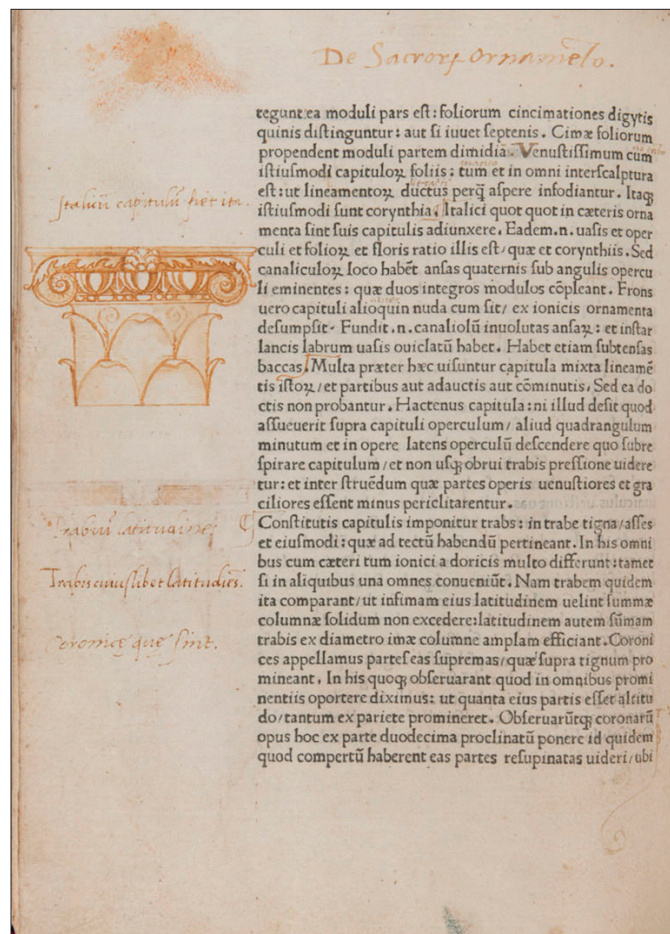 De Sacroꝝ ornamēto.
tegunt ea moduli pars est: foliorum cincinnationes digytis
quinis distinguntur: aut si iuuet septenis. Cimæ foliorum
propendent moduli partem dimidia. Venustissimum cum
istiusmodi capituloꝝ foliis: tum et in omni interscalptura
est: ut lineamentoꝝ ductus perꝗ̄ aspere infodiantur. Itaqꝫ
istiusmodi sunt corynthia. Italici quot quot in cæteris orna
menta sint suis capitulis adiunxere. Eadem.n. uasis et oper
culi et folioꝝ et floris ratio illis est/quæ et corynthiis. Sed
canaliculoꝝ loco habēt ansas quaternis sub angulis opercu
li eminentes: quæ duos integros modulos cōpleant. Frons
uero capituli alioquin nuda cum sit/ ex ionicis ornamenta
desumpsit. Fundit.n. canaliolū inuolutas ansaꝝ: et instar
lancis labrum uasis ouiclatū habet. Habet etiam subtensas
baccas. Multa præter hæc uisuntur capitula mixta lineamē
tis istoꝝ/et partibus aut adauctis aut cōminutis. Sed ea do
ctis non probantur. Hactenus capitula: ni illud desit quod
assueuerit supra capituli operculum/ aliud quadrangulum
minutum et in opere latens operculū descendere quo subre
spirare capitulum/et non usqꝫ obrui trabis pressione uidere
tur: et inter struēdum quæ partes operis uenustiores et gra
ciliores essent minus periclitarentur.
Constitutis capitulis imponitur trabs: in trabe tigna/asses
et eiusmodi: quæ ad tectū habendū pertineant. In his omni
bus cum cæteri tum ionici a doricis multo differunt: tamet
si in aliquibus una omnes conueniūt. Nam trabem quidem
ita comparant/ut infimam eius latitudinem uelint summæ
columnæ solidum non excedere: latitudinem autem sūmam
trabis ex diametro imæ columne amplam efficiant. Coroni
ces appellamus partes eas supremas/quæ supra tignum pro
mineant. In his quoqꝫ obseruarant quod in omnibus promi
nentiis oportere diximus: ut quanta eius partis esset altitu
do/tantum ex pariete promineret. Obseruarūtqꝫ coronarū
opus hoc ex parte duodecima proclinatū ponere id quidem
quod compertū haberent eas partes resupinatas uideri/ubi
Italicū capitulū fiet ita.
Trabiū latitudines
Trabis cuiuslibet latitudies.
Coronicę quę sint.